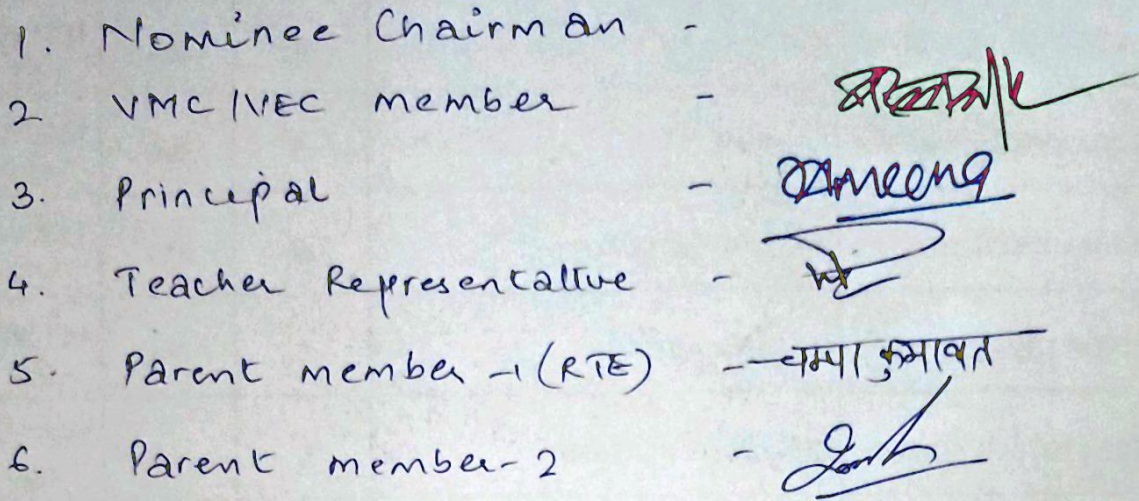 1. Nominee Chairman -
2 VMC/VEC member -
3. Principal - Meena
4. Teacher Representative -
5. Parent member -1 (RTE) - चम्पा कुमावत
6. Parent member-2 -